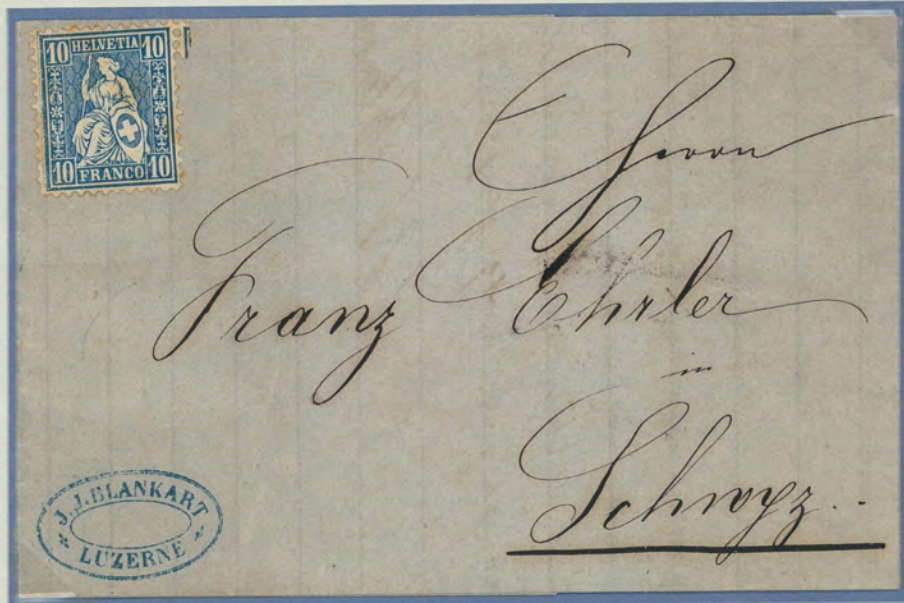 10 HELVETIA 10
10 FRANCO 10
Herrn
Franz Ehrler
in
Schwyz.
J. J. BLANKART
LUZERNE